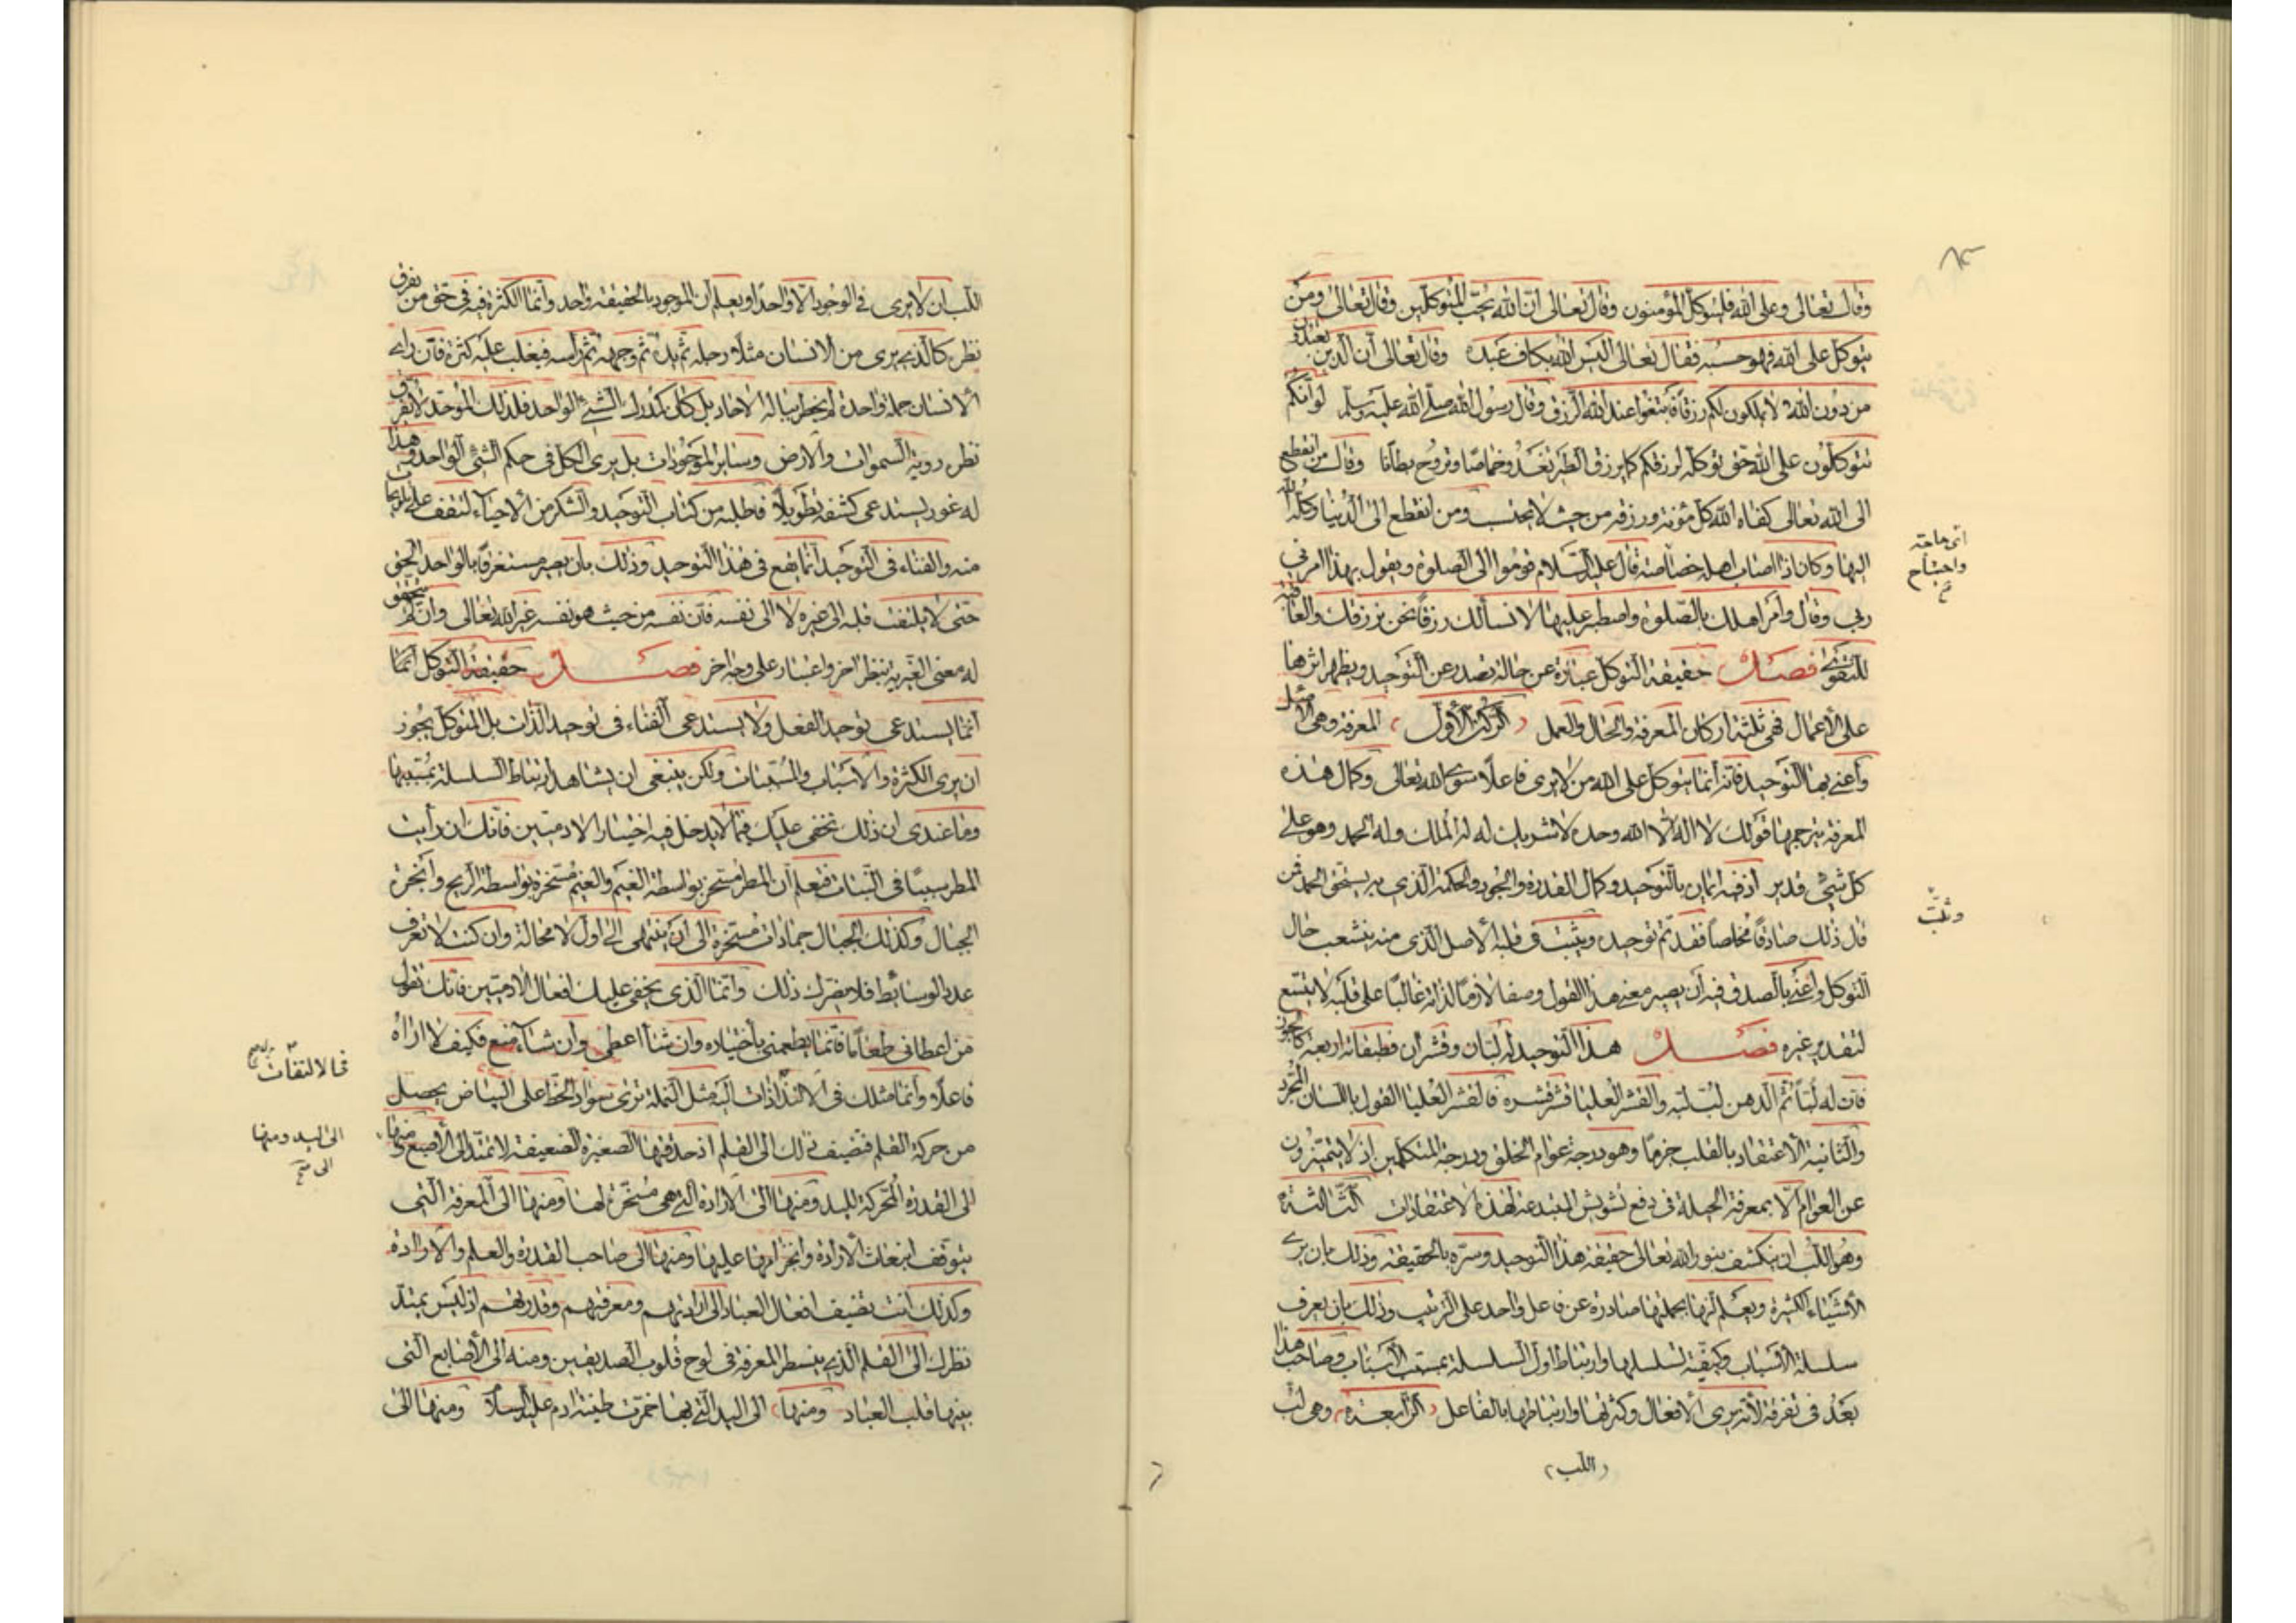 وقال تعالى وعلى الله فليتوكل المؤمنون وقال تعالى ان الله يحب المتوكلين وقال تعالى ومن
يتوكل على الله فهو حسبه فقال تعالى اليس الله بكاف عبده وقال تعالى ان الذين تعبدون
من دون الله لا يملكون لكم رزقا فابتغوا عند الله الرزق وقال رسول الله صلى الله عليه وسلم لو انكم
تتوكلون على الله حق توكله لرزقكم كما يرزق الطير تغدو خماصا وتروح بطانا وقال من انقطع
الى الله تعالى كفاه الله كل مؤنة ورزقه من حيث لا يحتسب ومن انقطع الى الدنيا وكله الله
اليها وكان اذا اصاب اهله خصاصة قال عليه السلام قوموا الى الصلوة ويقول بهذا امرني
ربي وقال وأمر اهلك بالصلوة واصطبر عليها لا نسألك رزقا نحن نرزقك والعاقبة
للتقوى فصل حقيقة التوكل عبارة عن حالة تصدر عن التوحيد ويظهر اثرها
على الأعمال فهي ثلثة اركان المعرفة والحال والعمل (الركن الأول) المعرفة وهي الاصل
وأعني بها التوحيد فانه انما يتوكل على الله من لا يرى فاعلا سوى الله تعالى وكمال هذه
المعرفة يترجمها قولك لا اله الا الله وحده لا شريك له له الملك وله الحمد وهو على
كل شيئ قدير اذ فيه ايمان بالتوحيد وكمال القدرة والجود والحكمة الذي به يستحق الحمد فمن
قال ذلك صادقا مخلصا فقد تم توحيده ويثبت في قلبه الأصل الذي منه ينشعب حال
التوكل وأعني بالصدق فيه أن يصير معنى هذا القول وصفا لازما لذاته غالبا على قلبه لا يتسع
لتقدير غيره فصل هذا التوحيد له لبان وقشران فطبقاته اربعة كالجوز
فان له لبا ثم الدهن لب لبه والقشر العليا قشر قشره فالقشر العليا القول باللسان المجرد
والثانية الاعتقاد بالقلب جزما وهو درجة عوام الخلق ودرجة المتكلمين اذ لا يتميزون
عن العوام الا بمعرفة الحيلة في دفع تشويش المبتدعة لهذه الاعتقادات الثالثة
وهو اللب ان ينكشف بنور الله تعالى حقيقة هذا التوحيد وسره بالحقيقة وذلك بان يرى
الأشياء الكثيرة ويعلم انها بجملتها صادرة عن فاعل واحد على الترتيب وذلك بان يعرف
سلسلة الاسباب وكيفية تسلسلها وارتباط اول السلسلة بمسبب الاسباب وصاحب هذا
بعد في تفرقة لأنه يرى الافعال وكثرتها وارتباطها بالفاعل (الرابعة) وهى لب
(اللب)
اى حاجة
واحتياج
وثبت
اللب ان لا يرى في الوجود الا واحدا ويعلم أن الموجود بالحقيقة واحد وأنما الكثرة فيه في حق من تفرق
نظره كالذي يرى من الانسان مثلا رجله ثم يده ثم وجهه ثم رأسه فيغلب عليه كثرته فان رأى
الانسان جملة واحدة لم يخطر بباله الآحاد بل كان كمدرك الشيئ الواحد فلذلك الموحد لا يفرق
نظره روية السموات والارض وساير الموجودات بل يرى الكل في حكم الشئ الواحد وهذا
له غور يستدعى كشفه تطويلا فاطلبه من كتاب التوحيد والشكر من الاحياء لتقف على تلويحات
منه والفناء في التوحيد انما يقع في هذا التوحيد وذلك بأن يصير مستغرقا بالواحد الحق
حتى لا يلتفت قلبه الى غيره لا الى نفسه فان نفسه من حيث هو نفسه غير الله تعالى وان لم يتحقق
له معنى الغيرية بنظر اخر واعتبار على وجه اخر فصل حقيقة التوكل انما
انما يستدعى توحيد الفعل ولا يستدعى الفناء في توحيد الذات بل المتوكل يجوز
ان يرى الكثرة والاسباب والمسببات ولكن ينبغى ان يشاهد ارتباط السلسلة بمسببها
وما عندى ان ذلك يخفى عليك فيما لا يدخل فيه اختيار الادميين فانك ان رأيت
المطر سببا في النبات فتعلم أن المطر مسخر بواسطة الغيم والغيم مسخرة بواسطة الريح وأبخرة
الجبال وكذلك الجبال جمادات مسخرة الى أن ينتهى الى اول لا محالة وان كنت لا تعرف
عدد الوسائط فلا يضرك ذلك وانما الذى يخفى عليك افعال الادميين فانك تقول
من اعطانى طعاما فانما يطعمنى بأختياره وان شاء اعطى وأن شاء منع فكيف لا اراه
فاعلا وأنما مثلك في الالتذاذات اليه مثل النملة ترى سواد الخط على البياض يحصل
من حركة القلم فتضيف ذلك الى القلم اذ حدقتها الصغيرة الضعيفة لا تمتد الى الأصبع ومنها
الى القدرة المحركة لليد ومنها الى الارادة التي هي مسخرة لها ومنها الى المعرفة التى
يتوقف انبعاث الارادة وانجزامها عليها ومنها الى صاحب القدرة والعلم والارادة
وكذلك انت تضيف افعال العباد الى ارادتهم ومعرفتهم وقدرتهم اذ ليس يمتد
نظرك الى القلم الذي ينسطر المعرفة في لوح قلوب الصديقين ومنه الى الأصابع التى
بينها قلب العباد (ومنها) الى اليد التي بها خمرت طينة ادم عليه السلام ومنها الى
فى الالتفات
الى اليد ومنها
الى